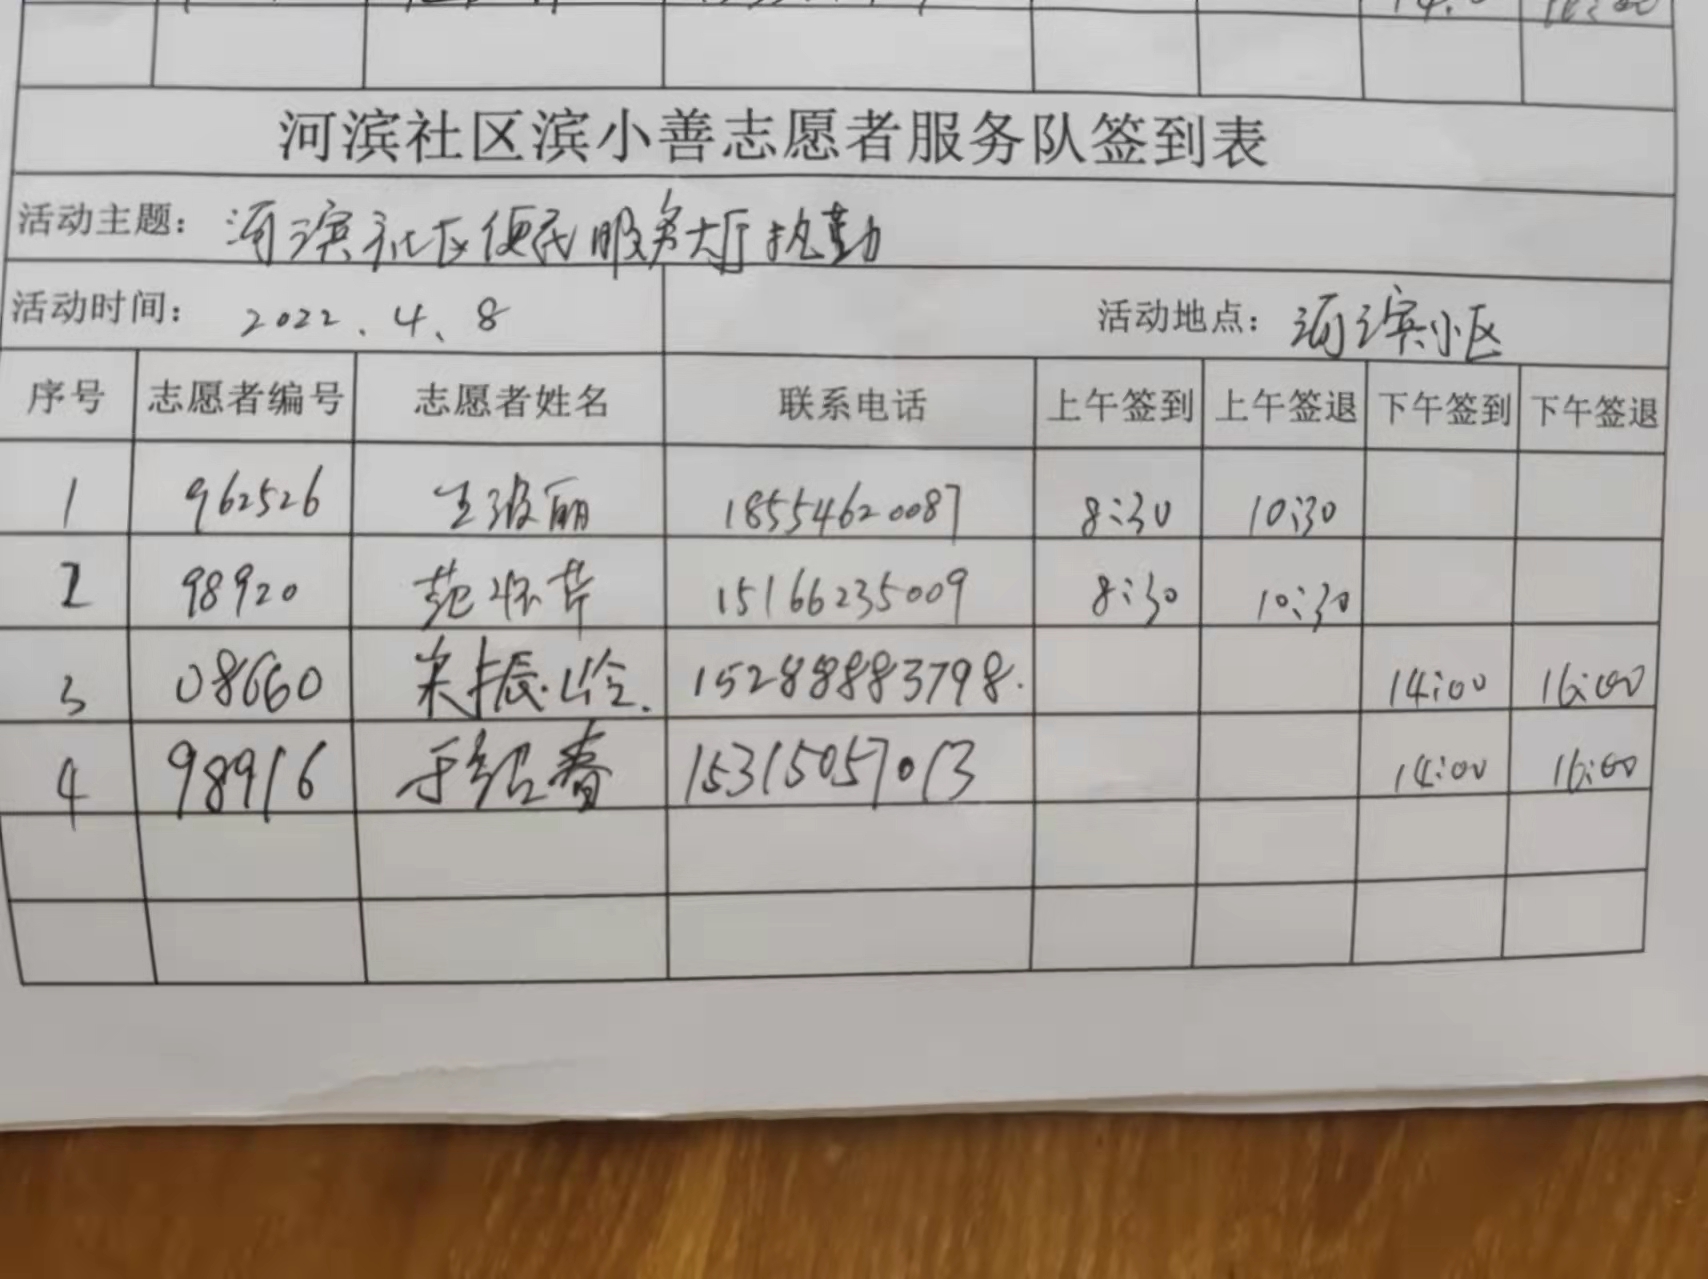 14:00 16:00
河滨社区滨小善志愿者服务队签到表
活动主题: 河滨社区便民服务大厅执勤
活动时间: 2022.4.8 活动地点: 河滨小区
序号 志愿者编号 志愿者姓名 联系电话 上午签到 上午签退 下午签到 下午签退
1 962526 王淑丽 18554620087 8:30 10:30
2 98920 范怀芹 15166235009 8:30 10:30
3 08660 宋振岭. 15288883798. 14:00 16:00
4 98916 于绍春 15315057013 14:00 16:00